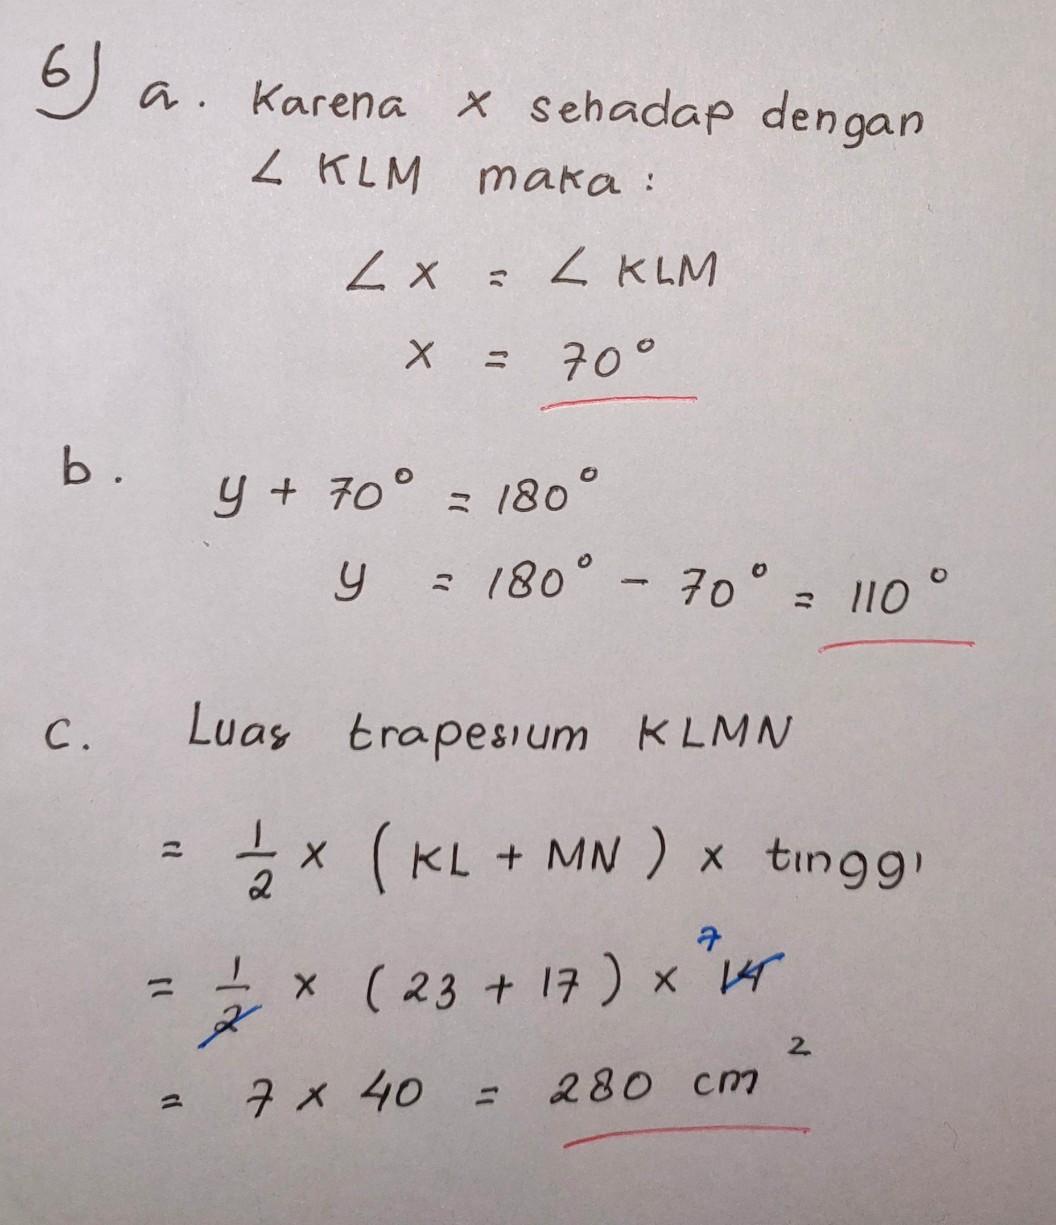 6) a. Karena x sehadap dengan
∠ KLM maka :
∠ x = ∠ KLM
x = 70°
b. y + 70° = 180°
y = 180° - 70° = 110°
c. Luas trapesium KLMN
= 1/2 x ( KL + MN ) x tinggi
= 1/2 x ( 23 + 17 ) x 7 14
= 7 x 40 = 280 cm²